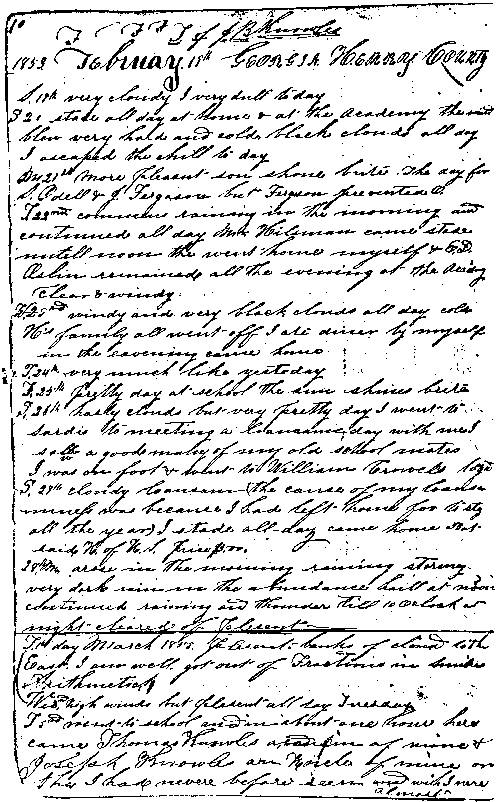 10
J. B. Knowles
1853 February 18th GEORGIA HENRY COUNTY
S. 19th very cloudy I very dull to day
S 20 stade all day at home & at the Academy the wind
blow very hard and cold black clouds all day
I escaped the chill to day
M 21st more plesent son shone brite The day for
S. Odell & J. Ferguson but Ferguson prevented
T 22nd commence raining in the morning and
continued all day Mr. Hilsman came stade
untill noon the went home myself &
remained all the evening at the
Clear & windy
W 23rd windy and very black clouds all day cold
H's family all went off I ate diner by myself
in the eavening came home
T. 24th very much like yesteday
F. 25th pretty day at school the sun shines brite
S. 26th hazly clouds but very pretty day I went to
sardis to meeting a lonesome day with me I
saw a good many of my old school mates
I was on foot & went to William Crowells
S. 27th cloudy lonsom (the cause of my lonsom
ness was because I had left home for to stay
all the year) I stade all day came home
said H. of H. S.
28th M arose in the morning raining storng
very dark rain in the abundance hail at noon
continued raining and thunder till 10 Oclock at
night cleared of Plesent
T. 1st day March 1853. Plesent banks of cloud to the
East. I am well, got out of Fractions in Smiths
Arithmetick
Wed. high winds but plesent all day
T. 3rd went to school and in about one hour here
came Thomas Knowles of mine &
Joseph Knowles an Uncle of mine on
this I had never before seen and wild were
almost